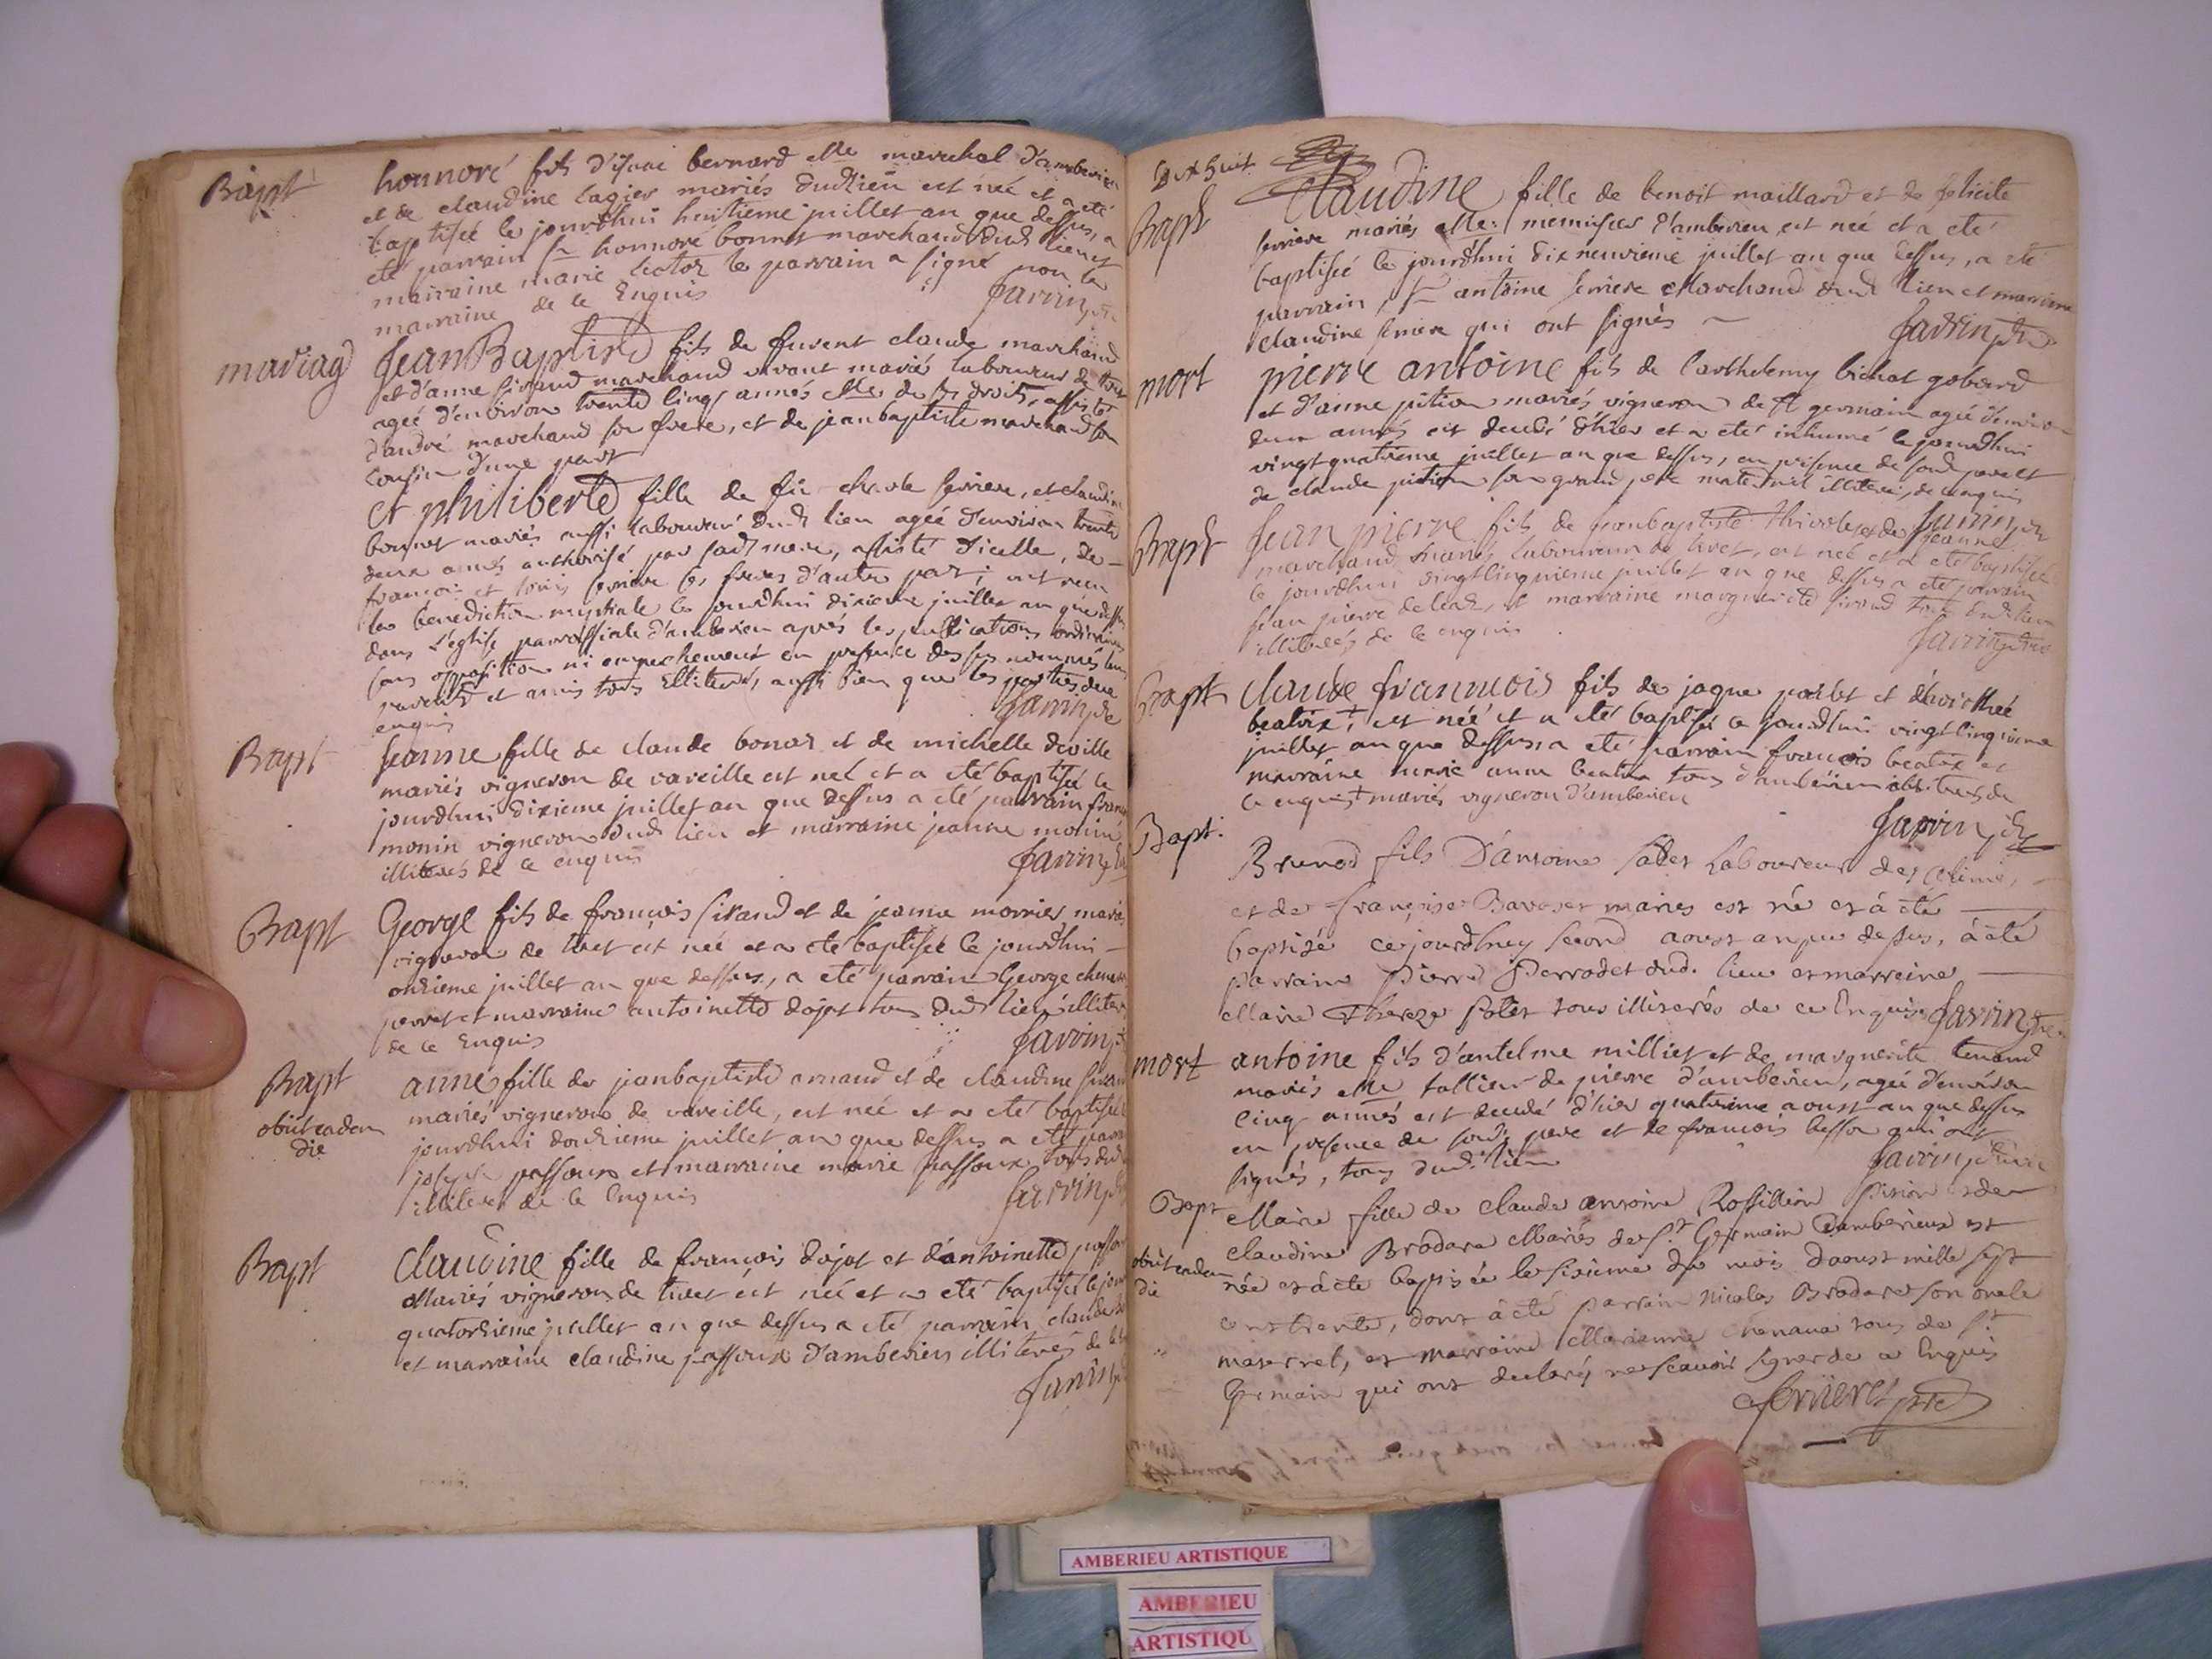 Bapt
honnoré fils d'isaac bernard Me marechal d'amberieu
et de claudine lagier mariés dudt lieu est né et a eté
baptisé le jourdhui huitieme juillet an que dessus, a
eté parrain sr honnoré bonnet marchand dud lieu et
marraine marie hector le parrain a signé non la
marraine de ce Enquis
Jarrin ptre
mariag
Jean Baptiste fils de fuent claude marchand
et d'anne sirand marchand vivant mariés laboureur de tiret
agé d'environ trente cinq années Me de ses droits, assisté
d'andré marchand son frere, et de jeanbaptiste marchand son
cousin d'une part
et philiberte fille de fû charle ferriere, et claudine
bonnet mariés aussi laboureur dud lieu ageé d'environ trente
deux années authorisé par sadt mere, assisté d'icelle, de
francois et louis ferriere ses freres d'autre part; ont recu
la benediction nuptiale le jourdhui dixieme juillet an que dessus
dans l'eglise parroissiale d'amberieu aprés les publications ordinaires
sans opposition ni empechement en presence des sus nommés leurs
parents et amis tous illiterés, aussi bien que les parties de ce
enquis
Jarrin ptre
Bapt
Jeanne fille de claude bonar et de michelle deville
mariés vigneron de vareille est neé et a eté baptisée le
jourdhui dixieme juillet an que dessus a eté parrain francois
monin vigneron dud lieu et marraine jeanne monin
illiterés de ce enquis
Jarrin ptre
Bapt
George fils de francois sirand et de jeanne monnier mariés
vigneron de tiret est né et a eté baptisé le jourdhui
onzieme juillet an que dessus, a eté parrain George
perret et marraine antoinette dojat tous dud lieu illiterés
de ce Enquis
Jarrin ptre
Bapt
obiit eadem
die
anne fille de jeanbaptiste arnaud et de claudine sirand
mariés vigneron de vareille, est neé et a eté baptisée
jourdhui douzieme juillet an que dessus a eté parrain
joseph passoux et marraine marie passoux tous dud
illiterés de ce Enquis
Jarrin ptre
Bapt
Claudine fille de francois dojat et d'antoinette passoux
Mariés vigneron de tiret est neé et a eté baptisée le jour
quatorzieme juillet an que dessus a eté parrain claude
et marraine claudine passoux d'amberieu illiterés de ce
Jarrin ptre
Dix huit
Bapt
Claudine fille de benoit maillard et de felicite
ferriere mariés Me menuisier d'amberieu est neé et a eté
baptisée le jourdhui dix neuvieme juillet an que dessus, a eté
parrain sr antoine ferriere Marchand dud lieu et marraine
claudine ferriere qui ont signés
Jarrin ptre
mort
pierre antoine fils de barthelemy bichat gobard
et d'anne pition mariés vigneron de st germain agé d'environ
deux années est decedé d'hier et a eté inhumé le jourdhui
vingt quatrieme juillet an que dessus, en presence de sond pere et
de claude pition son grand pere maternel illiterés, de ce enquis
Jarrin ptre
Bapt
Jean pierre fils de jeanbaptiste thivolet et de jeanne
marchand mariés laboureur de tiret, est né et a eté baptisé
le jourdhui vingtcinquieme juillet an que dessus a eté parrain
jean pierre et marraine marguerite sirand tous dud lieu
illiterés de ce enquis
Jarrin ptre
Bapt
claude francois fils de jaque paclet et d'
beatrix + est né et a eté baptisé le jourdhui vingt cinquieme
juillet an que dessus a eté parrain francois beatrix et
marraine marie anne beatrix tous d'amberieu illiterés de
ce enquis + mariés vigneron d'amberieu
Jarrin ptre
Bapt.
Brunod fils D'antoine Laboureur des alimes,
et de françoise Bavoset maries est né et à eté
baptisé ce jourdhuy second aoust an que dessus, à eté
parrain Pierre Perrodet dud. lieu et marreine
Marie Thereze tous illiterés de ce Enquis
Jarrin ptre
mort
antoine fils d'antelme milliet et de marguerite tenand
mariés Me tallieur de pierre d'amberieu, agé d'environ
cinq années est decedé d'hier quatrieme aoust an que dessus
en presence de sond pere et de francois besson qui ont
signés, tous dud lieu
Jarrin ptre
Bapt
obiit eadem
die
Marie fille de claude antoine Rossillion et de
claudine Brodare Mariés de st Germain d'amberieux est
née et à eté baptisée le sixieme du mois daoust mille sept
cent trente, dont à eté parrain nicolas Brodare son oncle
maternel, et marraine Marienne chenaua tous de st
Germain qui ont declaré ne scavoir signer de ce Enquis
ferrieret ptre
AMBERIEU ARTISTIQUE
AMBERIEU
ARTISTIQU